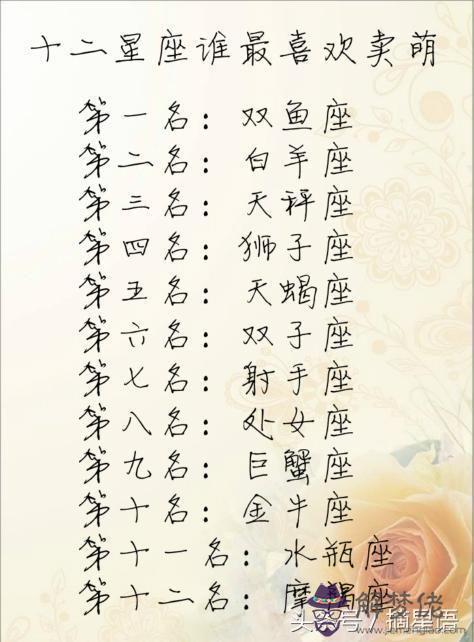 十二星座谁最喜欢卖萌
第一名：双鱼座
第二名：白羊座
第三名：天秤座
第四名：狮子座
第五名：天蝎座
第六名：双子座
第七名：射手座
第八名：处女座
第九名：巨蟹座
第十名：金牛座
第十一名：水瓶座
第十二名：摩羯座
解梦佬
头条号/摘星语